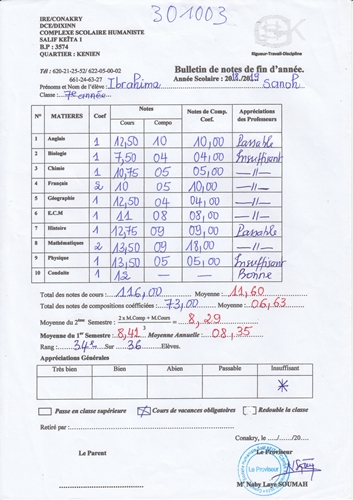 301003
IRE/CONAKRY
DCE/DIXINN
COMPLEXE SCOLAIRE HUMANISTE
SALIF KEÏTA 1
B.P : 3574
QUARTIER : KENIEN
Rigueur-Travail-Discipline
Tél : 620-21-25-52/ 622-05-00-02
661-24-63-27
Bulletin de notes de fin d'année.
Année Scolaire : 2018./2019
Prénoms et Nom de l'élève : Ibrahima Sanoh
Classe : 7e année
N° MATIERES Coef Notes Notes de Comp. Coef. Appréciations des Professeurs
Cours Compo
1 Anglais 1 12,50 10 10,00 Passable
2 Biologie 1 7,50 04 04,00 Insuffisant
3 Chimie 1 10,75 05 05,00 —//—
4 Français 2 10 05 10,00 —//—
5 Géographie 1 12,50 04 04,00 —//—
6 E.C.M 1 11 08 08,00 —//—
7 Histoire 1 12,75 09 09,00 Passable
8 Mathématiques 2 13,50 09 18,00 —//—
9 Physique 1 13,50 05 05,00 Insuffisant
10 Conduite 1 12 — — Bonne
Total des notes de cours : 116,00 Moyenne : 11,60
Total des notes de compositions coéfficiées : 73,00 Moyenne : 06,63
Moyenne du 2ème Semestre : 2 x M.Comp + M.Cours / 3 = 8,29
Moyenne du 1er Semestre : 8,41 Moyenne Annuelle : 08,35
Rang : 34e Sur 36 Elèves.
Appréciations Générales
Très bien Bien Abien Passable Insuffisant
Passe en classe supérieure Cours de vacances obligatoires Redouble la classe
Retiré par :
Conakry, le / /20
Le Parent Le Proviseur
Le Proviseur
Mr Naby Laye SOUMAH